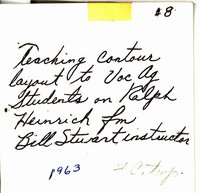 #8
Teaching contour
layout to Voc Ag
Students on Ralph
Heinrich fm
Bill Stuvart instructor
1963